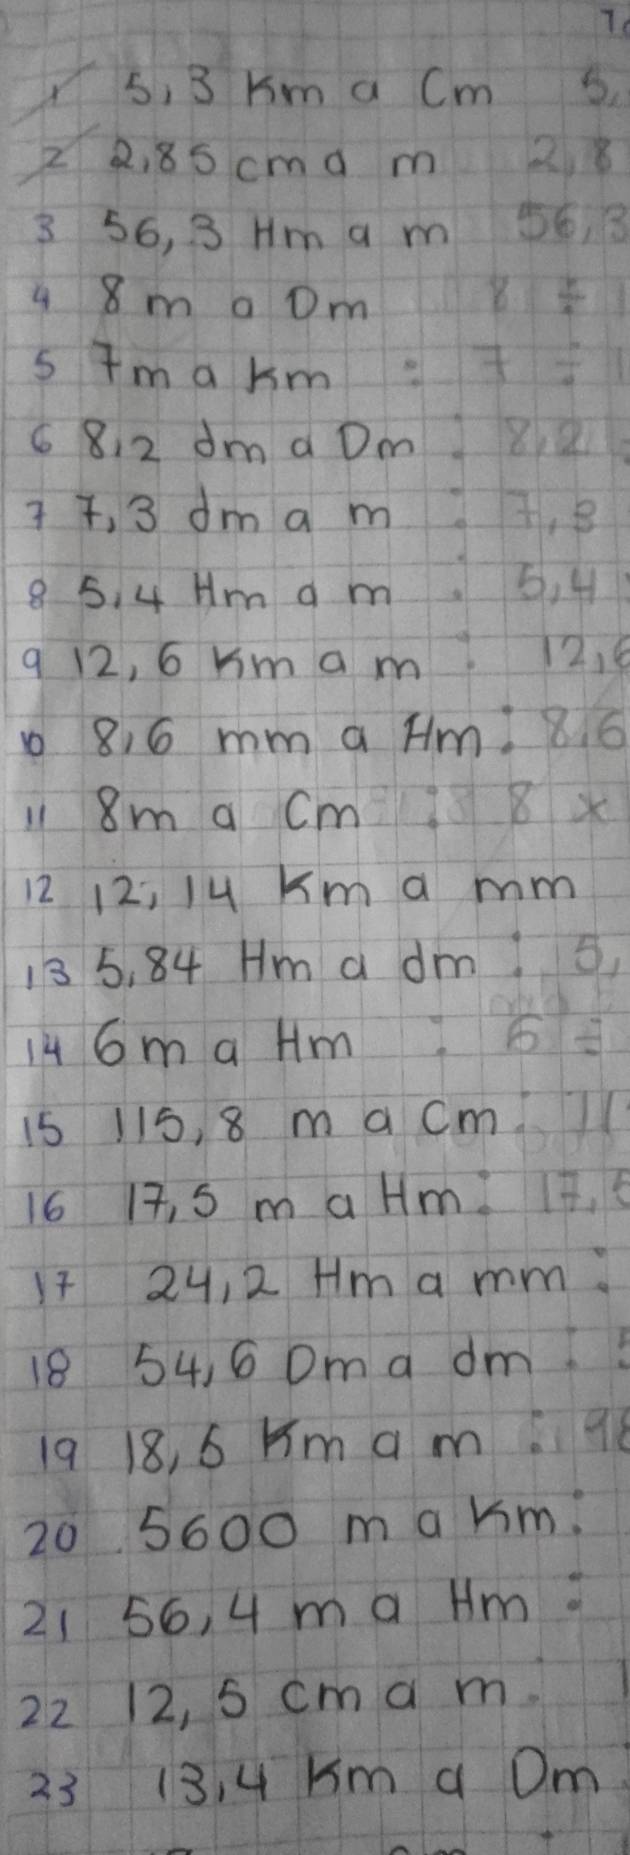 1 5,3 Km a Cm 5,
2 2,85 cm a m 2,8
3 56,3 Hm a m 56,3
4 8 m a Dm 8 ÷ 1
5 7m a Km : 7 ÷ 1
6 8,2 dm a Dm : 8,2
7 7,3 dm a m : 7,3
8 5,4 Hm a m : 5,4
9 12,6 Km a m : 12,6
10 8,6 mm a Hm : 8,6
11 8m a Cm : 8 x
12 12,14 Km a mm
13 5,84 Hm a dm : 5,
14 6m a Hm : 6 ÷
15 115,8 m a Cm : 11
16 17,5 m a Hm : 17,5
17 24,2 Hm a mm :
18 54,6 Dm a dm : 5
19 18,6 Km a m : 98
20 5600 m a Km :
21 56,4 m a Hm :
22 12,5 cm a m : 1
23 13,4 Km a Dm